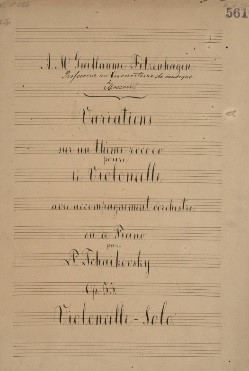 561
A. M. Guillaume Fitzenhagen
Professeur au Conservatoire de musique
Moscou
Variations
sur un thème rococo
pour
le Violoncelle
avec accompagnement d'orchestre
ou de Piano
par
P. Tchaikovsky
Op. 33
Violoncelle-Solo